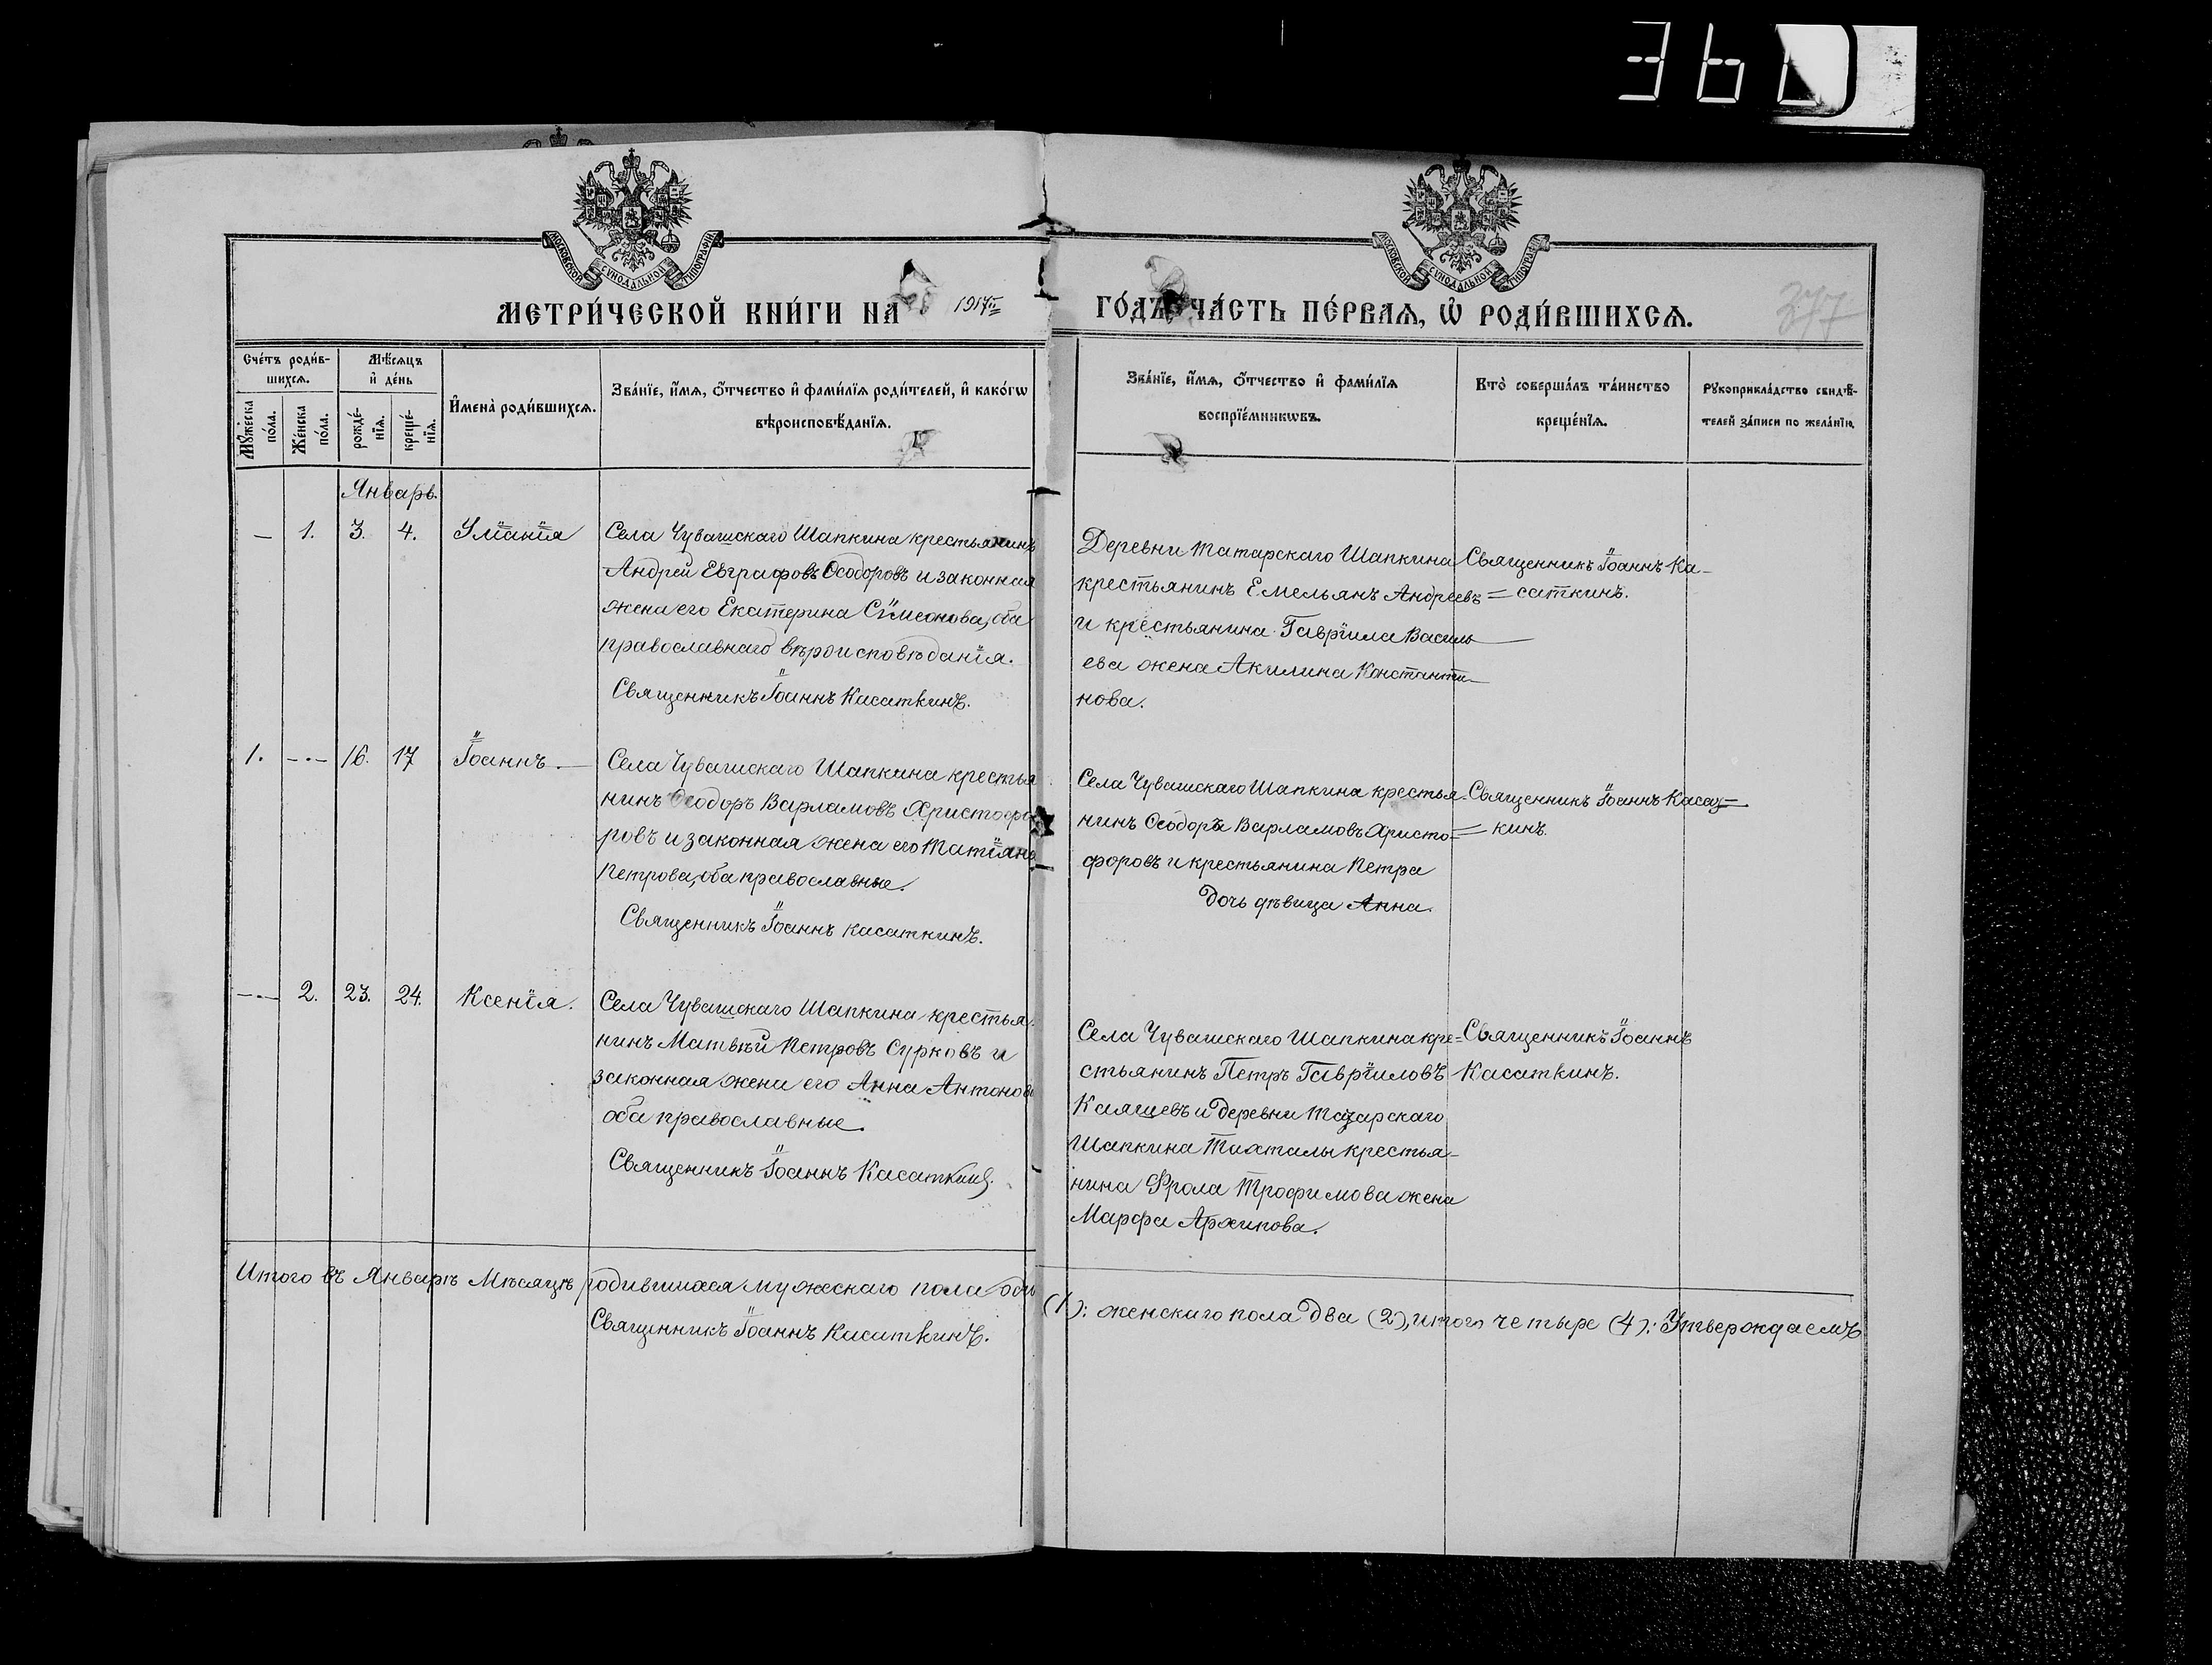 МОСКОВСКОЙ СѴНОДАЛЬНОЙ ТИПОГРАФІИ
МОСКОВСКОЙ СѴНОДАЛЬНОЙ ТИПОГРАФІИ
МЕТРИ́ЧЕСКОЙ КНИ́ГИ НА 1917
ГО́ДЪ ЧА́СТЬ ПЕ́РВАЯ, Ѡ҆ РОДИ́ВШИХСЯ.
377
Сче́тъ роди́в-
шихся.
Мѣ́сяцъ
и҆ де́нь
Мꙋ́жеска
по́ла.
Же́нска
по́ла.
рожде́-
нїя.
креще́-
нїя.
И҆мена̀ роди́вшихся.
Зва́нїе, и҆́мя, ѻ҆́тчество и҆ фами́лїя роди́телей, и҆ како́гѡ
вѣроисповѣ́данїя.
Зва́нїе, и҆́мя, ѻ҆́тчество и҆ фами́лїя
воспрїе́мникѡвъ.
Кто̀ соверша́лъ та́инство
креще́нїя.
Рꙋкоприкла́дство свидѣ́-
телей за́писи по жела́нїю.
Январь.
— 1. 3. 4.
Села Чувашскаго Шапкина крестьянинъ
Андрей Евграфовъ Ѳеодоровъ и законная
жена его Екатерина Сѵмеонова, оба
православнаго вѣроисповѣданія.
Священникъ Іоаннъ Касаткинъ.
Деревни Татарскаго Шапкина
крестьянинъ Емельянъ Андреевъ =
и крестьянина Гавріила Василь
ева жена Акилина Константи—
нова.
Священникъ Іоаннъ Ка-
саткинъ.
1. -·- 16. 17 Іоаннъ. —
Села Чувашскаго Шапкина крестья
нинъ Ѳеодоръ Варламовъ Христофо
ровъ и законная жена его Татіана
Петрова, оба православные.
Священникъ Іоаннъ Касаткинъ.
Села Чувашскаго Шапкина крестья-
нинъ Ѳеодоръ Варламовъ Христо=
форовъ и крестьянина Петра
дочь дѣвица Анна.
Священникъ Іоаннъ Касат—
кинъ.
-·- 2. 23. 24. Ксенія.
Села Чувашскаго Шапкина крестья-
нинъ Матвѣй Петровъ Сурковъ и
законная жена его Анна Антонова
оба православные.
Священникъ Іоаннъ Касаткинъ.
Села Чувашскаго Шапкина кре=
стьянинъ Петръ Гавріиловъ
и деревни Татарскаго
Шапкина Тахталы крестья-
нина Фрола Трофимова жена
Марфа Архипова.
Священникъ Іоаннъ
Касаткинъ.
Итого въ Январѣ Мѣсяцѣ родившихся мужескаго пола оди
(1): женскаго пола два (2), итого четыре (4): Утверждаемъ
Священникъ Іоаннъ Касаткинъ.